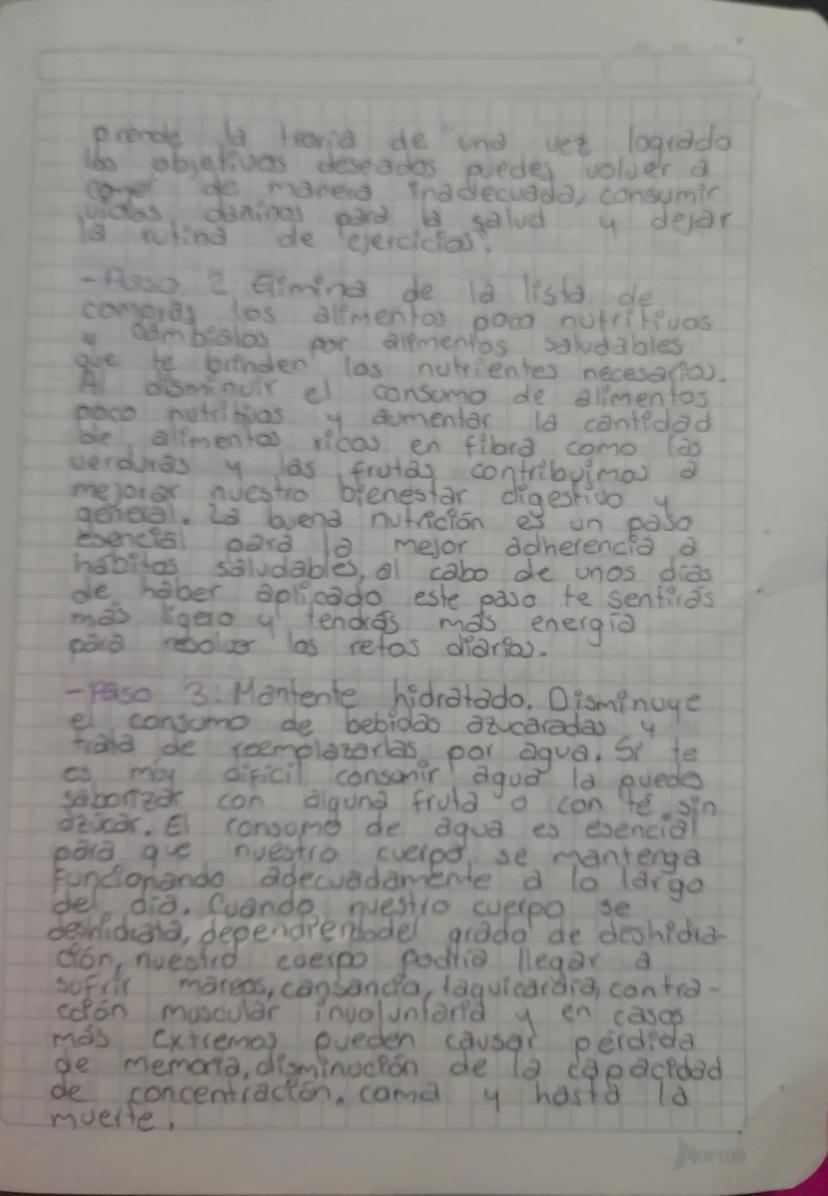 prende la teoría de una vez logrado
los objetivos deseados puedes volver a
comer de manera inadecuada, consumir
vicios daninos para la salud y dejar
la rutina de ejercicios.
- Paso 2: Elimina de la lista de
compras los alimentos poco nutritivos
y cambialos por alimentos saludables
que te brinden los nutrientes necesarios.
Al disminuir el consumo de alimentos
poco nutritivos y aumentar la cantidad
de alimentos ricos en fibra como las
verduras y las frutas contribuimos a
mejorar nuestro bienestar digestivo y
general. La buena nutrición es un paso
esencial para la mejor adherencia a
hábitos saludables, al cabo de unos días
de haber aplicado este paso te sentirás
más ligero y tendrás más energía
para resolver los retos diarios.
- Paso 3: Mantente hidratado. Disminuye
el consumo de bebidas azucaradas y
trata de reemplazarlas por agua. Si te
es muy dificil consumir agua la puedes
saborizar con alguna fruta o con té sin
azúcar. El consumo de agua es esencial
para que nuestro cuerpo se mantenga
funcionando adecuadamente a lo largo
del día. Cuando nuestro cuerpo se
deshidrata, dependiendo del grado de deshidra-
ción, nuestro cuerpo podría llegar a
sofrir mareos, cansancio, taquicardia, contra-
cción muscular involuntaria y en casos
más extremos pueden causar pérdida
de memoria, disminución de la capacidad
de concentración, coma y hasta la
muerte.
Norma